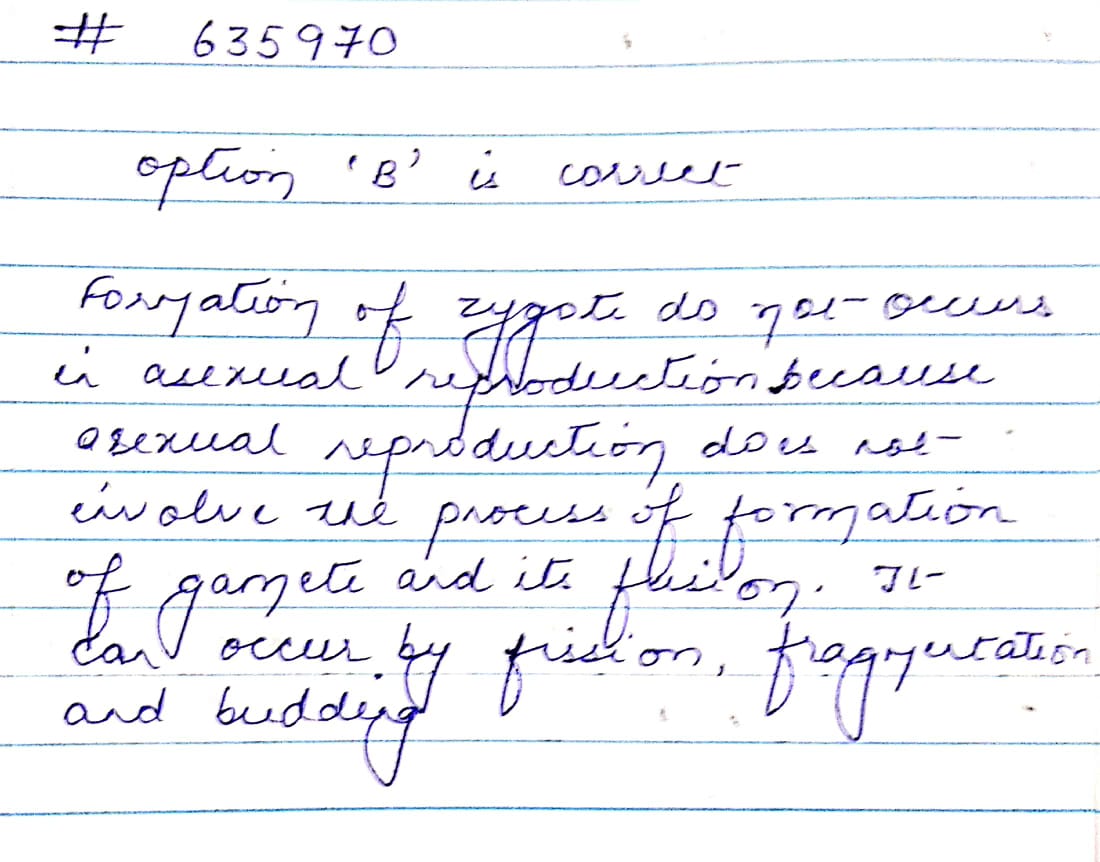 # 635970
option 'B' is correct
Formation of zygote do not occurs
in asexual reproduction because
asexual reproduction does not
involve the process of formation
of gamete and its fusion. It
can occur by fission, fragmentation
and budding